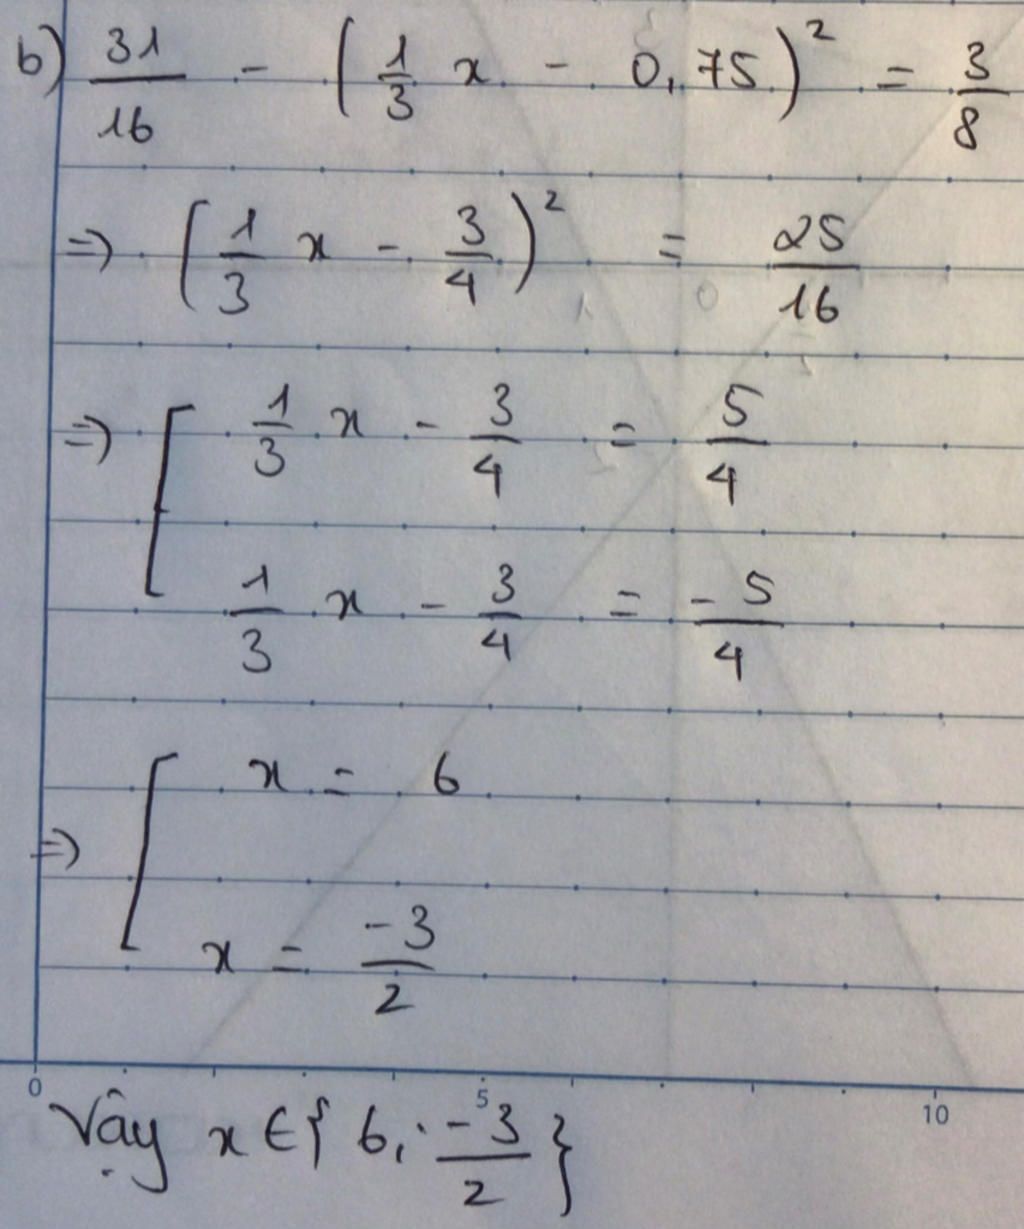 b) 31/16 - (1/3 x - 0,75)² = 3/8
=> (1/3 x - 3/4)² = 25/16
=> [ 1/3 x - 3/4 = 5/4
1/3 x - 3/4 = -5/4
=> [ x = 6
x = -3/2
0 5 10
Vậy x ∈ { 6; -3/2 }